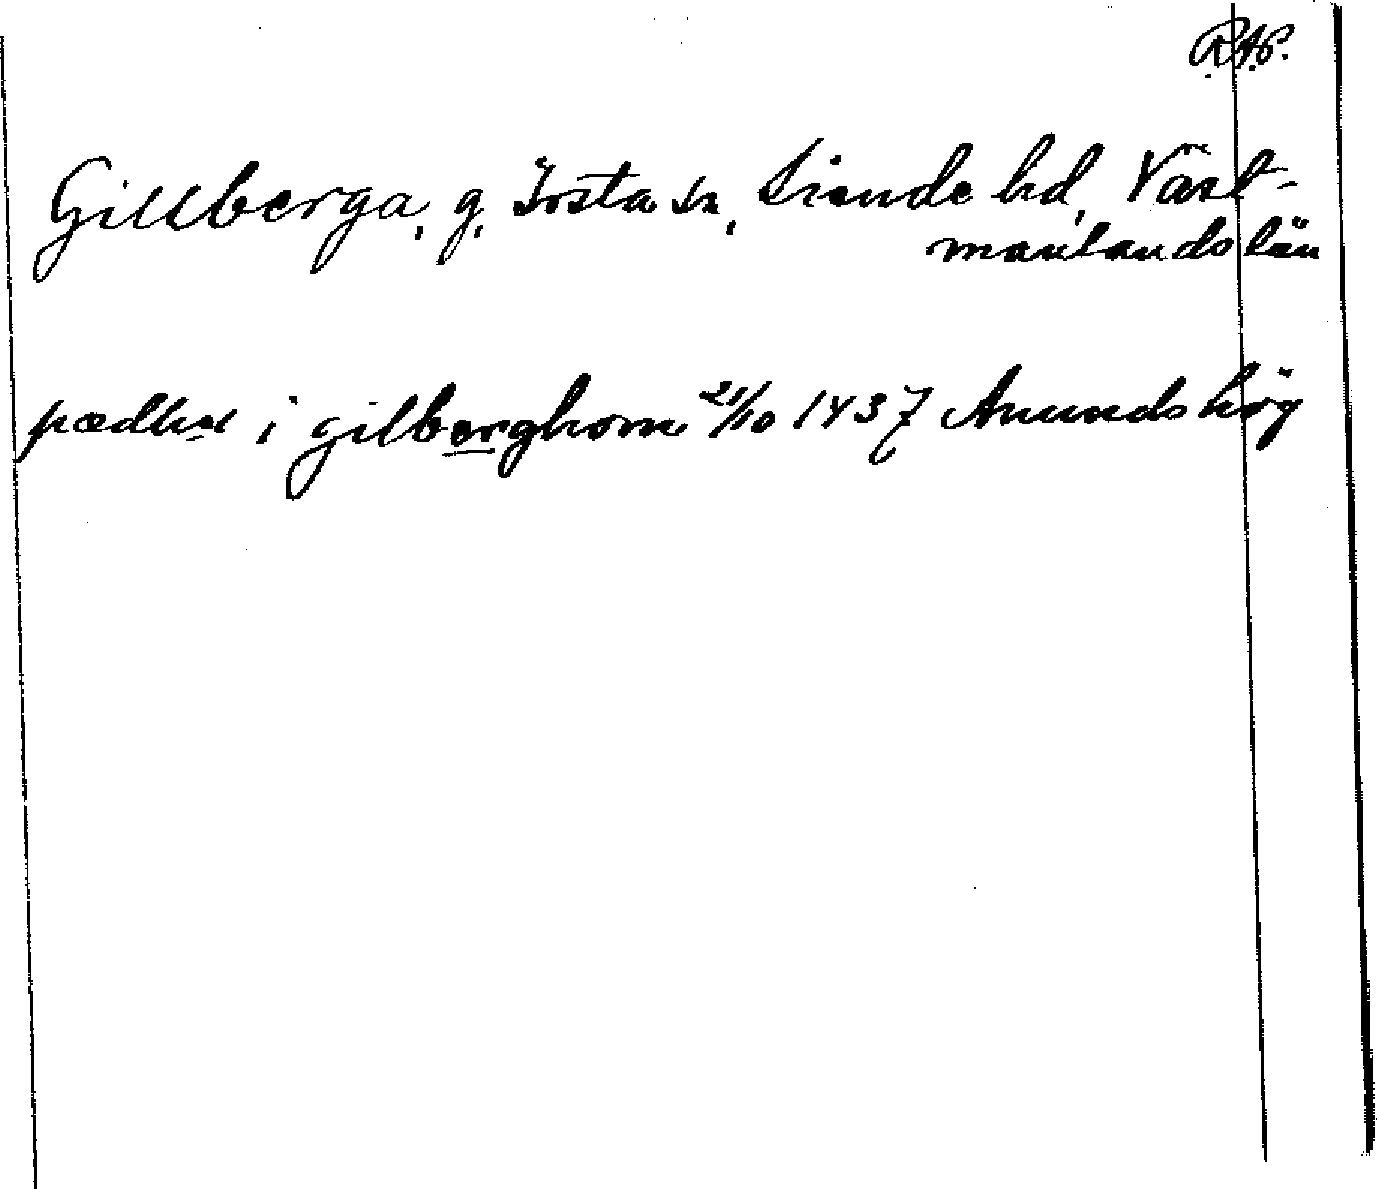 R.A.P.
Gillberga, g, Irsta sn, Siende hd, Väst-
manlands län
pædher i gilberghom 21/10 1437 Anundshög